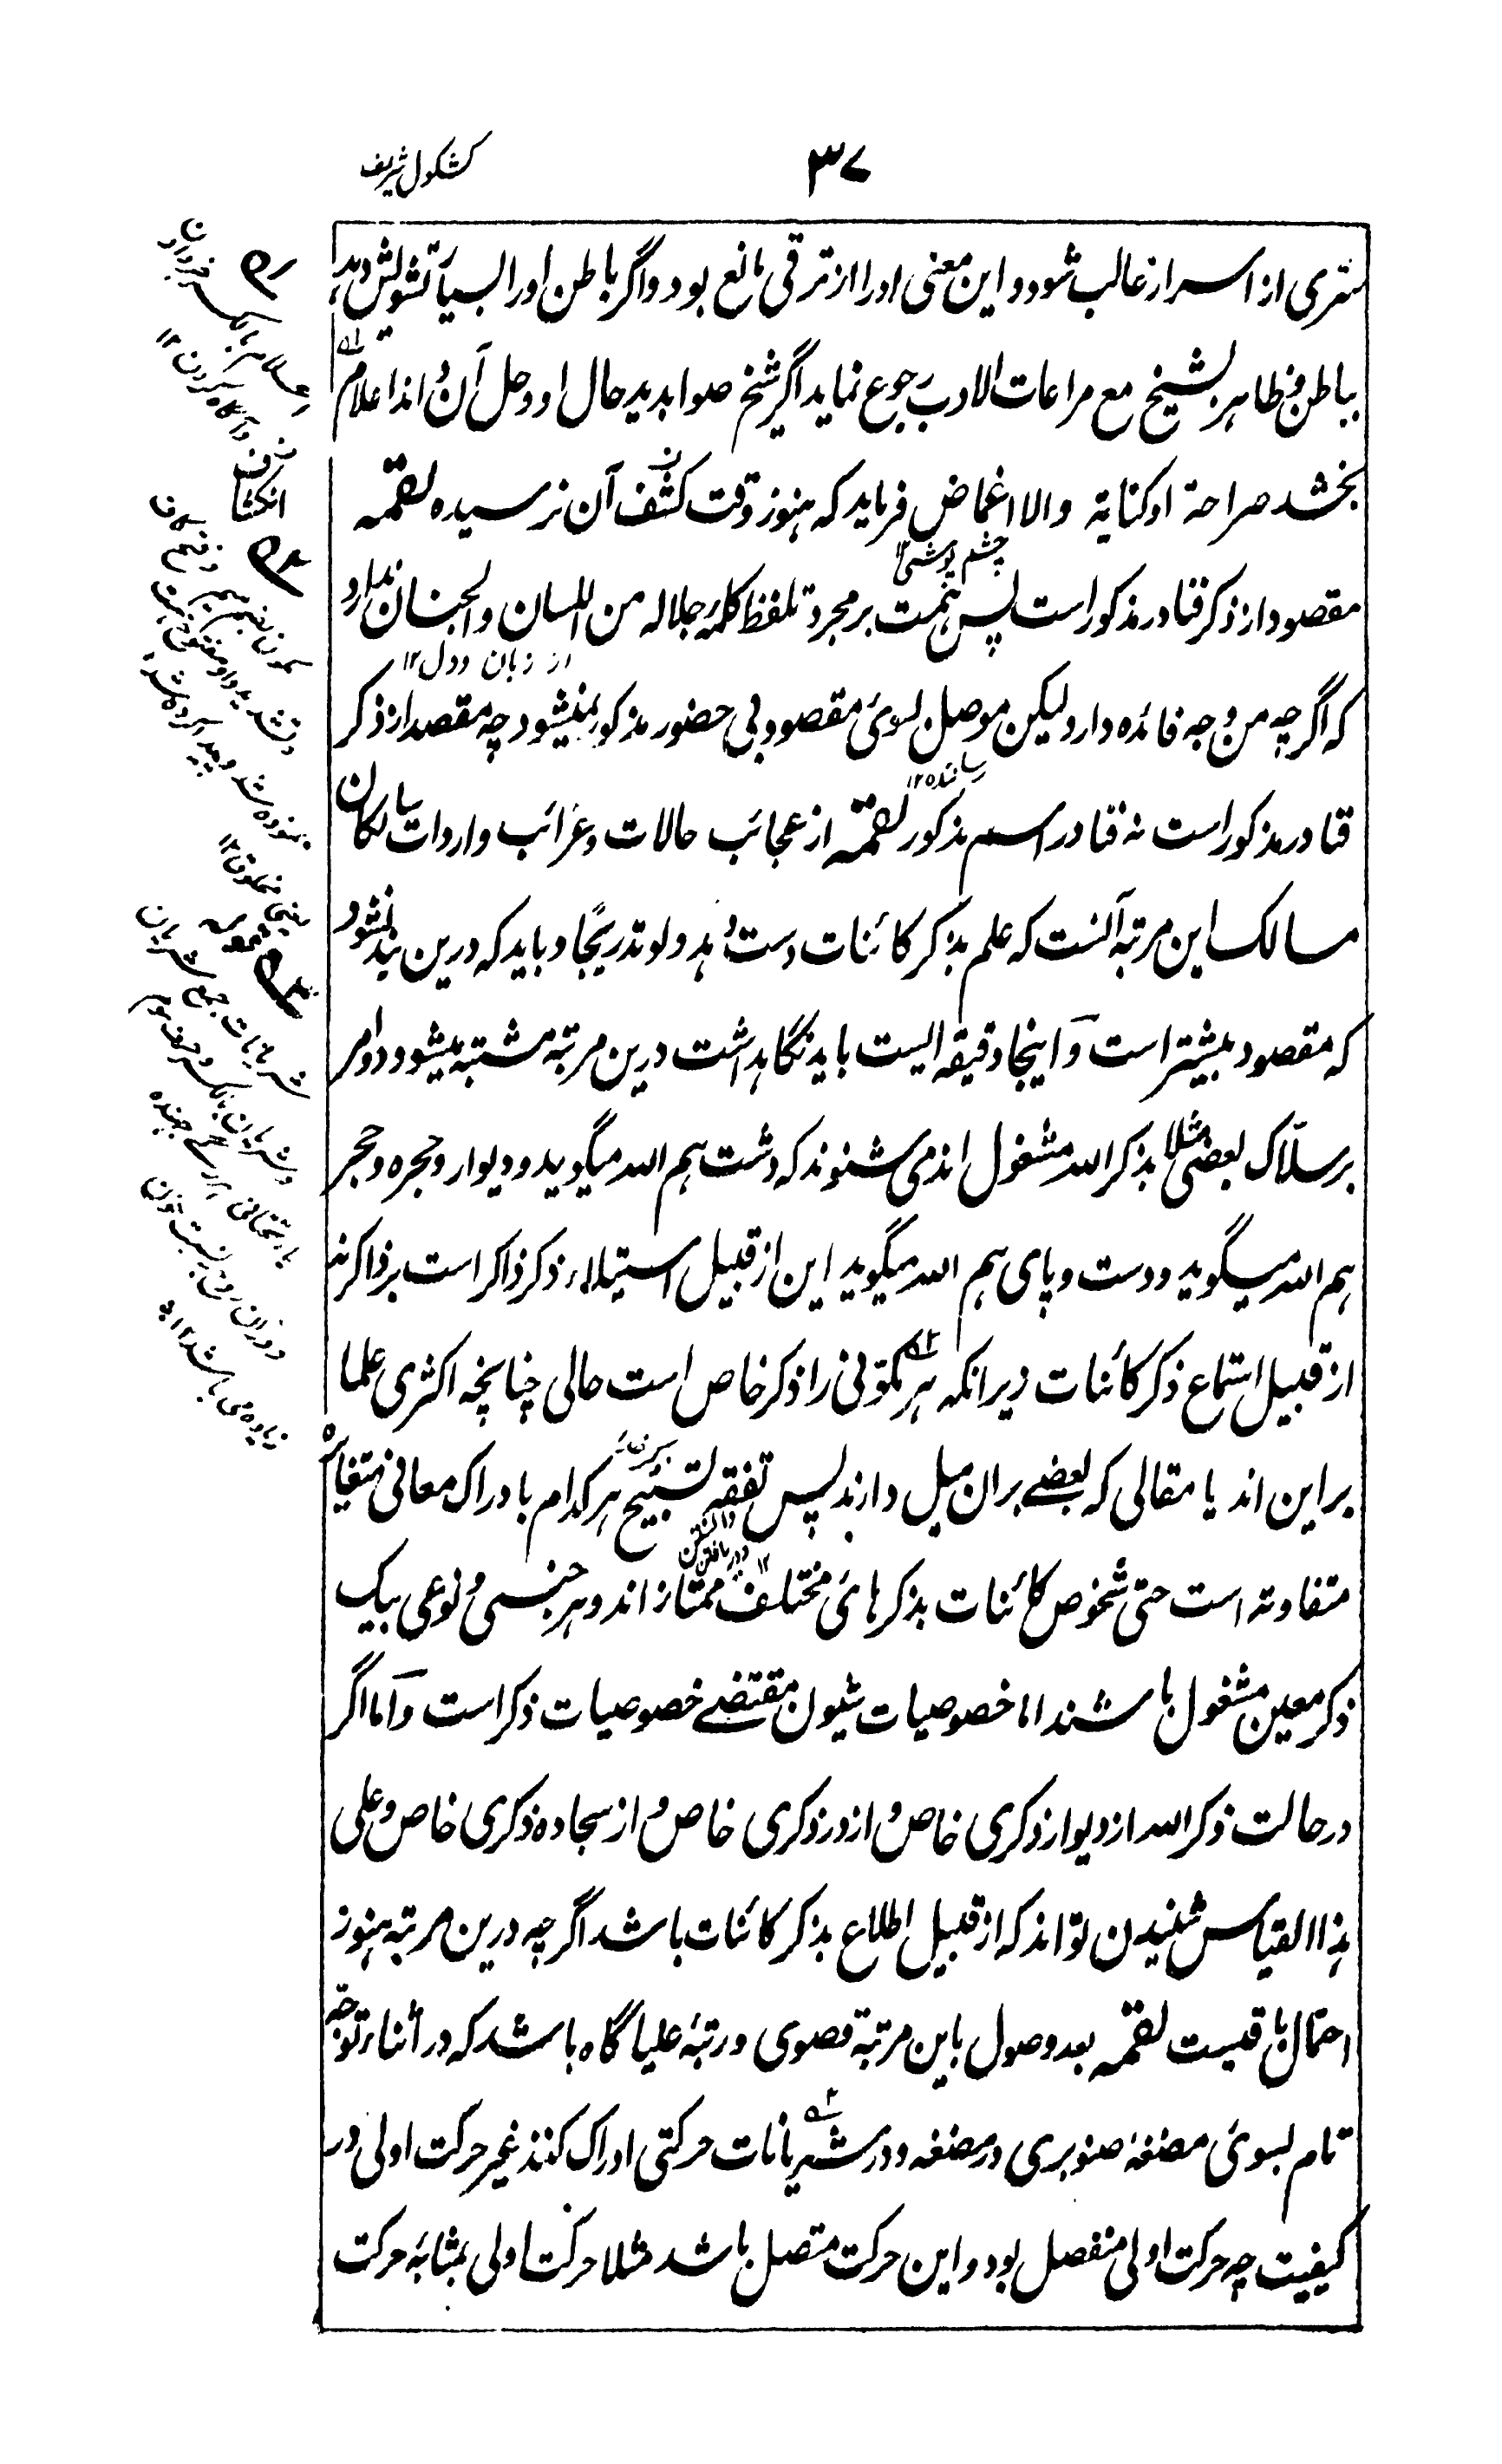 ۳۷
کشکول شریف
سری از اسرار غالب شود و این معنی اورا از ترقی مانع بود و اگر باطن اورا بسیار تشویش دهد
بباطن و ظاهر بشیخ مع مراعات الادب رجوع نماید اگر شیخ صواب دید حال او و حل آن واند اعلام
بخشد صراحة او کنایة والا اغماض فرماید که هنوز وقت کشف آن نرسیده لقمه
چشم پوشی
مقصود از ذکر فنا در مذکور است پس همت بر مجرد تلفظ کلمه جلاله من اللسان والجنان ندارد
از زبان و دل ۱۲
که اگرچه من وجه فائده دارد لیکن موصل بسوی مقصود بی حضور مذکور نمیشود چه مقصد از ذکر
رساننده ۱۲
فنا در مذکور است نه فنا در اسم مذکور لقمه از عجائب حالات و غرائب واردات سالکان
مسالک این مرتبه آنست که علم بذکر کائنات دست دهد ولو تدریجًا و باید که درین بند نشود
که مقصود بیشتر است و اینجا دقیقه ایست باید نگاهداشت درین مرتبه مشتبه میشود دو امر
بر سلّاک بعضی مثلا بذکر الله مشغول اند می شنوند که دشت هم الله میگوید و دیوار و حجره و حجر
هم الله میگوید و دست و پای هم الله میگوید این از قبیل استیلاء ذکر ذاکر است بر ذاکر نه
از قبیل استماع ذکر کائنات زیرانکه هر مکونی را ذکر خاص است حالی چنانچه اکثری علما
بر این اند یا مقالی که بعضے بران میل دارند پس تفقه تسبیح هر کدام بادراک معانی متغایره
دانستن
دریافتن ۱۲
متفاوته است حتی شخوص کائنات بذکرهای مختلف ممتاز اند و هر جنسی و نوعی بیک
ذکر معین مشغول باشند اما خصوصیات شیون مقتضے خصوصیات ذکر است و اما اگر
در حالت ذکر الله از دیوار ذکری خاص و از در ذکری خاص و از سجاده ذکری خاص و علی
هذا القیاس شنیدن تواند که از قبیل اطلاع بذکر کائنات باشد اگرچه درین مرتبه هنوز
احتمال باقیست لقمه بعد وصول باین مرتبه قصوی و رتبهٔ علیا گاه باشد که در اثناء توجه
تام بسوی مضغهٔ صنوبری در مضغه و در شریانات حرکتی ادراک کنند غیر حرکت اولی در
کیفیت چه حرکت اولی منفصل بود و این حرکت متصل باشد مثلا حرکت اولی بمثابهٔ حرکت
اعلام بالکسر خبر دادن
و آگاه کردن ۱۲
شریانات جمع شریان